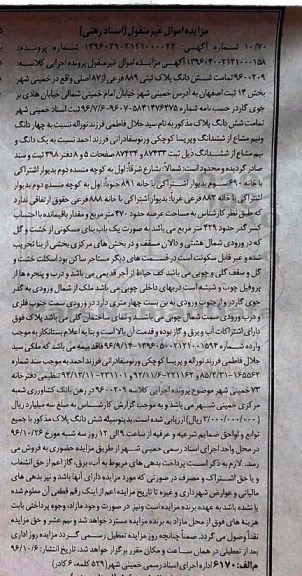 مزایده اموال غیرمنقول (اسناد رهنی)
۱۰/۷۰ شماره آگهی: ۱۳۹۶۰۳۹۰۲۱۲۱۰۰۰۰۴۲ شماره پرونده:
۱۳۹۶۰۴۰۰۲۱۲۱۰۰۰۱۵۸ آگهی مزایده اموال غیرمنقول پرونده اجرایی کلاسه:
۹۶۰۰۲۰۹ تمامت شش دانگ پلاک ثبتی ۸۸۹ فرعی از ۸۷ اصلی واقع در خمینی شهر
بخش ۱۴ ثبت اصفهان به آدرس خمینی شهر خیابان امام خمینی شمالی خیابان هادی بر
جوی گاردر حسب نامه شماره
تمامت شش دانگ پلاک مذکور به نام سید جلال فاطمی فرزند نوراله نسبت به چهار دانگ
ونیم مشاع از ششدانگ و پریسا کوچکی ورنوسفادرانی فرزند احمد نسبت به یک دانگ و
نیم مشاع از ششدانگ ذیل ثبت ۸۷۴۳۳ و ۸۷۴۳۴ صفحات ۵ و ۸ دفتر ۳۹۸ ثبت و سند
صادر گردیده و محدود است: شمالاً: بشارع شرقاً: اول به کوچه منسده دوم بدیوار اشتراکی
با خانه
با خانه ۸۸۳ فرعی غرباً: بدیوار اشتراکی با خانه ۸۸۸ فرعی حقوق ارتفاقی ندارد
که طبق نظر کارشناس به مساحت عرصه حدود ۴۷۰ متر مربع و مقدار باقیمانده با احتساب
کسر گذر حدود ۴۲۹ متر مربع می باشد به صورت یک باب بنای مسکونی از خشت و گل
که در ورودی شمال هشتی و دالان مسقف و در بخش های مرکزی بخشی از بنا تخریب
شده و غیر قابل سکونت است در قسمت های دیگر مستاجر ساکن بود اسکلت خشت و
گل و سقف گلی و چوبی می باشد کف حیاط از آجر قدیمی می باشد و درب و پنجره ها از
پروفیل چوب و شیشه است دربهای داخلی چوبی می باشد ملک از شمال ورودی به گذر
جوی گاردر و از جنوب ورودی به بن بست چهار متری دارد در ورودی سمت جنوب فلزی
و درب ورودی سمت شمال چوبی می باشد و نمای ساختمان گلی می باشد پلاک فوق
دارای اشتراکات آب و برق و گاز بوده و قدمت آن بالا است و بنا به اعلام بستانکار به موجب
وارده شماره ۱۳۹۶۰۵۰۰۲۱۲۱۰۰۱۵۹۴-۹۶/۹/۱۴ فاقد بیمه می باشد که ملکی سید
جلال فاطمی فرزند نوراله و پریسا کوچکی ورنوسفادرانی فرزند احمد به موجب سند شماره
تنظیمی دفترخانه
۷۳ خمینی شهر موضوع پرونده اجرایی کلاسه ۹۶۰۰۲۰۹ در رهن بانک کشاورزی شعبه
مرکزی خمینی شهر می باشد و به موجب گزارش کارشناس به مبلغ سه میلیارد ریال
(۳/۰۰۰/۰۰۰/۰۰۰ ریال) ارزیابی شده است، بدینوسیله شش دانگ پلاک مذکور با جمیع
توابع و لواحق ضمایم شرعیه و عرفیه از ساعت ۹ الی ۱۲ روز سه شنبه مورخ ۹۶/۱۰/۲۶
در محل واحد اجرای اسناد رسمی خمینی شهر از طریق مزایده حضوری به فروش می
رسد. لازم به ذکر است پرداخت بدهی های مربوط به آب، برق، گاز اعم از حق انشعاب
و یا حق اشتراک و مصرف در صورتی که مورد مزایده دارای آنها باشد و نیز بدهی های
مالیاتی و عوارض شهرداری و غیره تا تاریخ مزایده اعم از اینکه رقم قطعی آن معلوم شده
یا نشده باشد به عهده برنده مزایده است ونیز در صورت وجود مازاد، وجوه پرداختی بابت
هزینه های فوق از محل مازاد به برنده مزایده مسترد خواهد شد و نیم عشر و حق مزایده
نقداً وصول می گردد. ضمناً چنانچه روز مزایده تعطیل رسمی گردد مزایده روز اداری
بعد از تعطیلی در همان ساعت و مکان مقرر برگزار خواهد شد. تاریخ انتشار: ۹۶/۱۰/۶
م الف: ۶۱۷۰ اداره اجرای اسناد رسمی خمینی شهر (۵۲۹ کلمه، ۶ کادر)